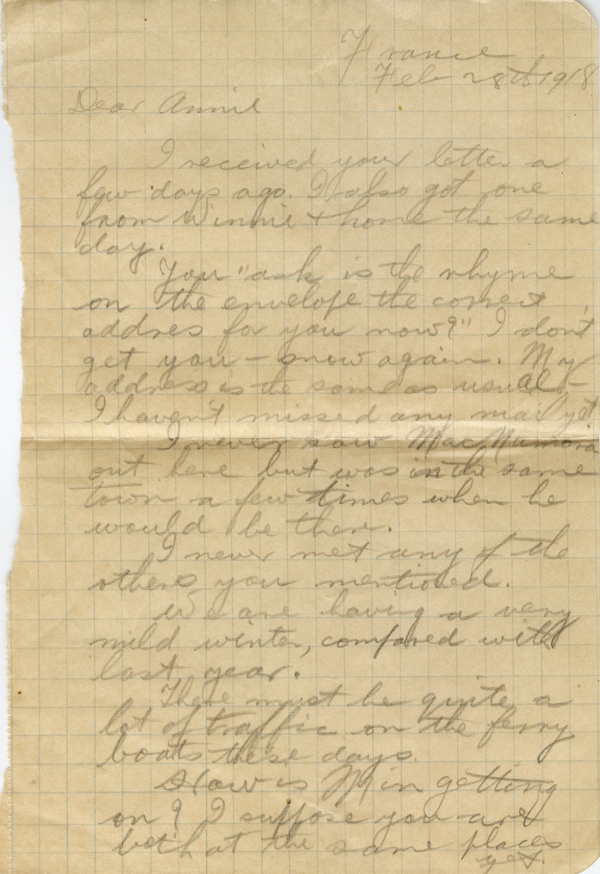 France
Feb 28th 1918
Dear Annie
I received your letter a
few days ago. I also got one
from Winnie + home the same
day.
You "ask is the rhyme
on the envelope the correct
addres for you now?" I don't
get you - snow again. My
address is the same as usual -
I haven't missed any mail yet
I never saw MacNamara
out here but was in the same
town a few times when he
would be there.
I never met any of the
others you mentioned.
We are having a very
mild winter, compared with
last year.
There must be quite a
lot of traffic on the ferry
boats these days.
How is Min getting
on? I suppose you are
both at the same places
yet.